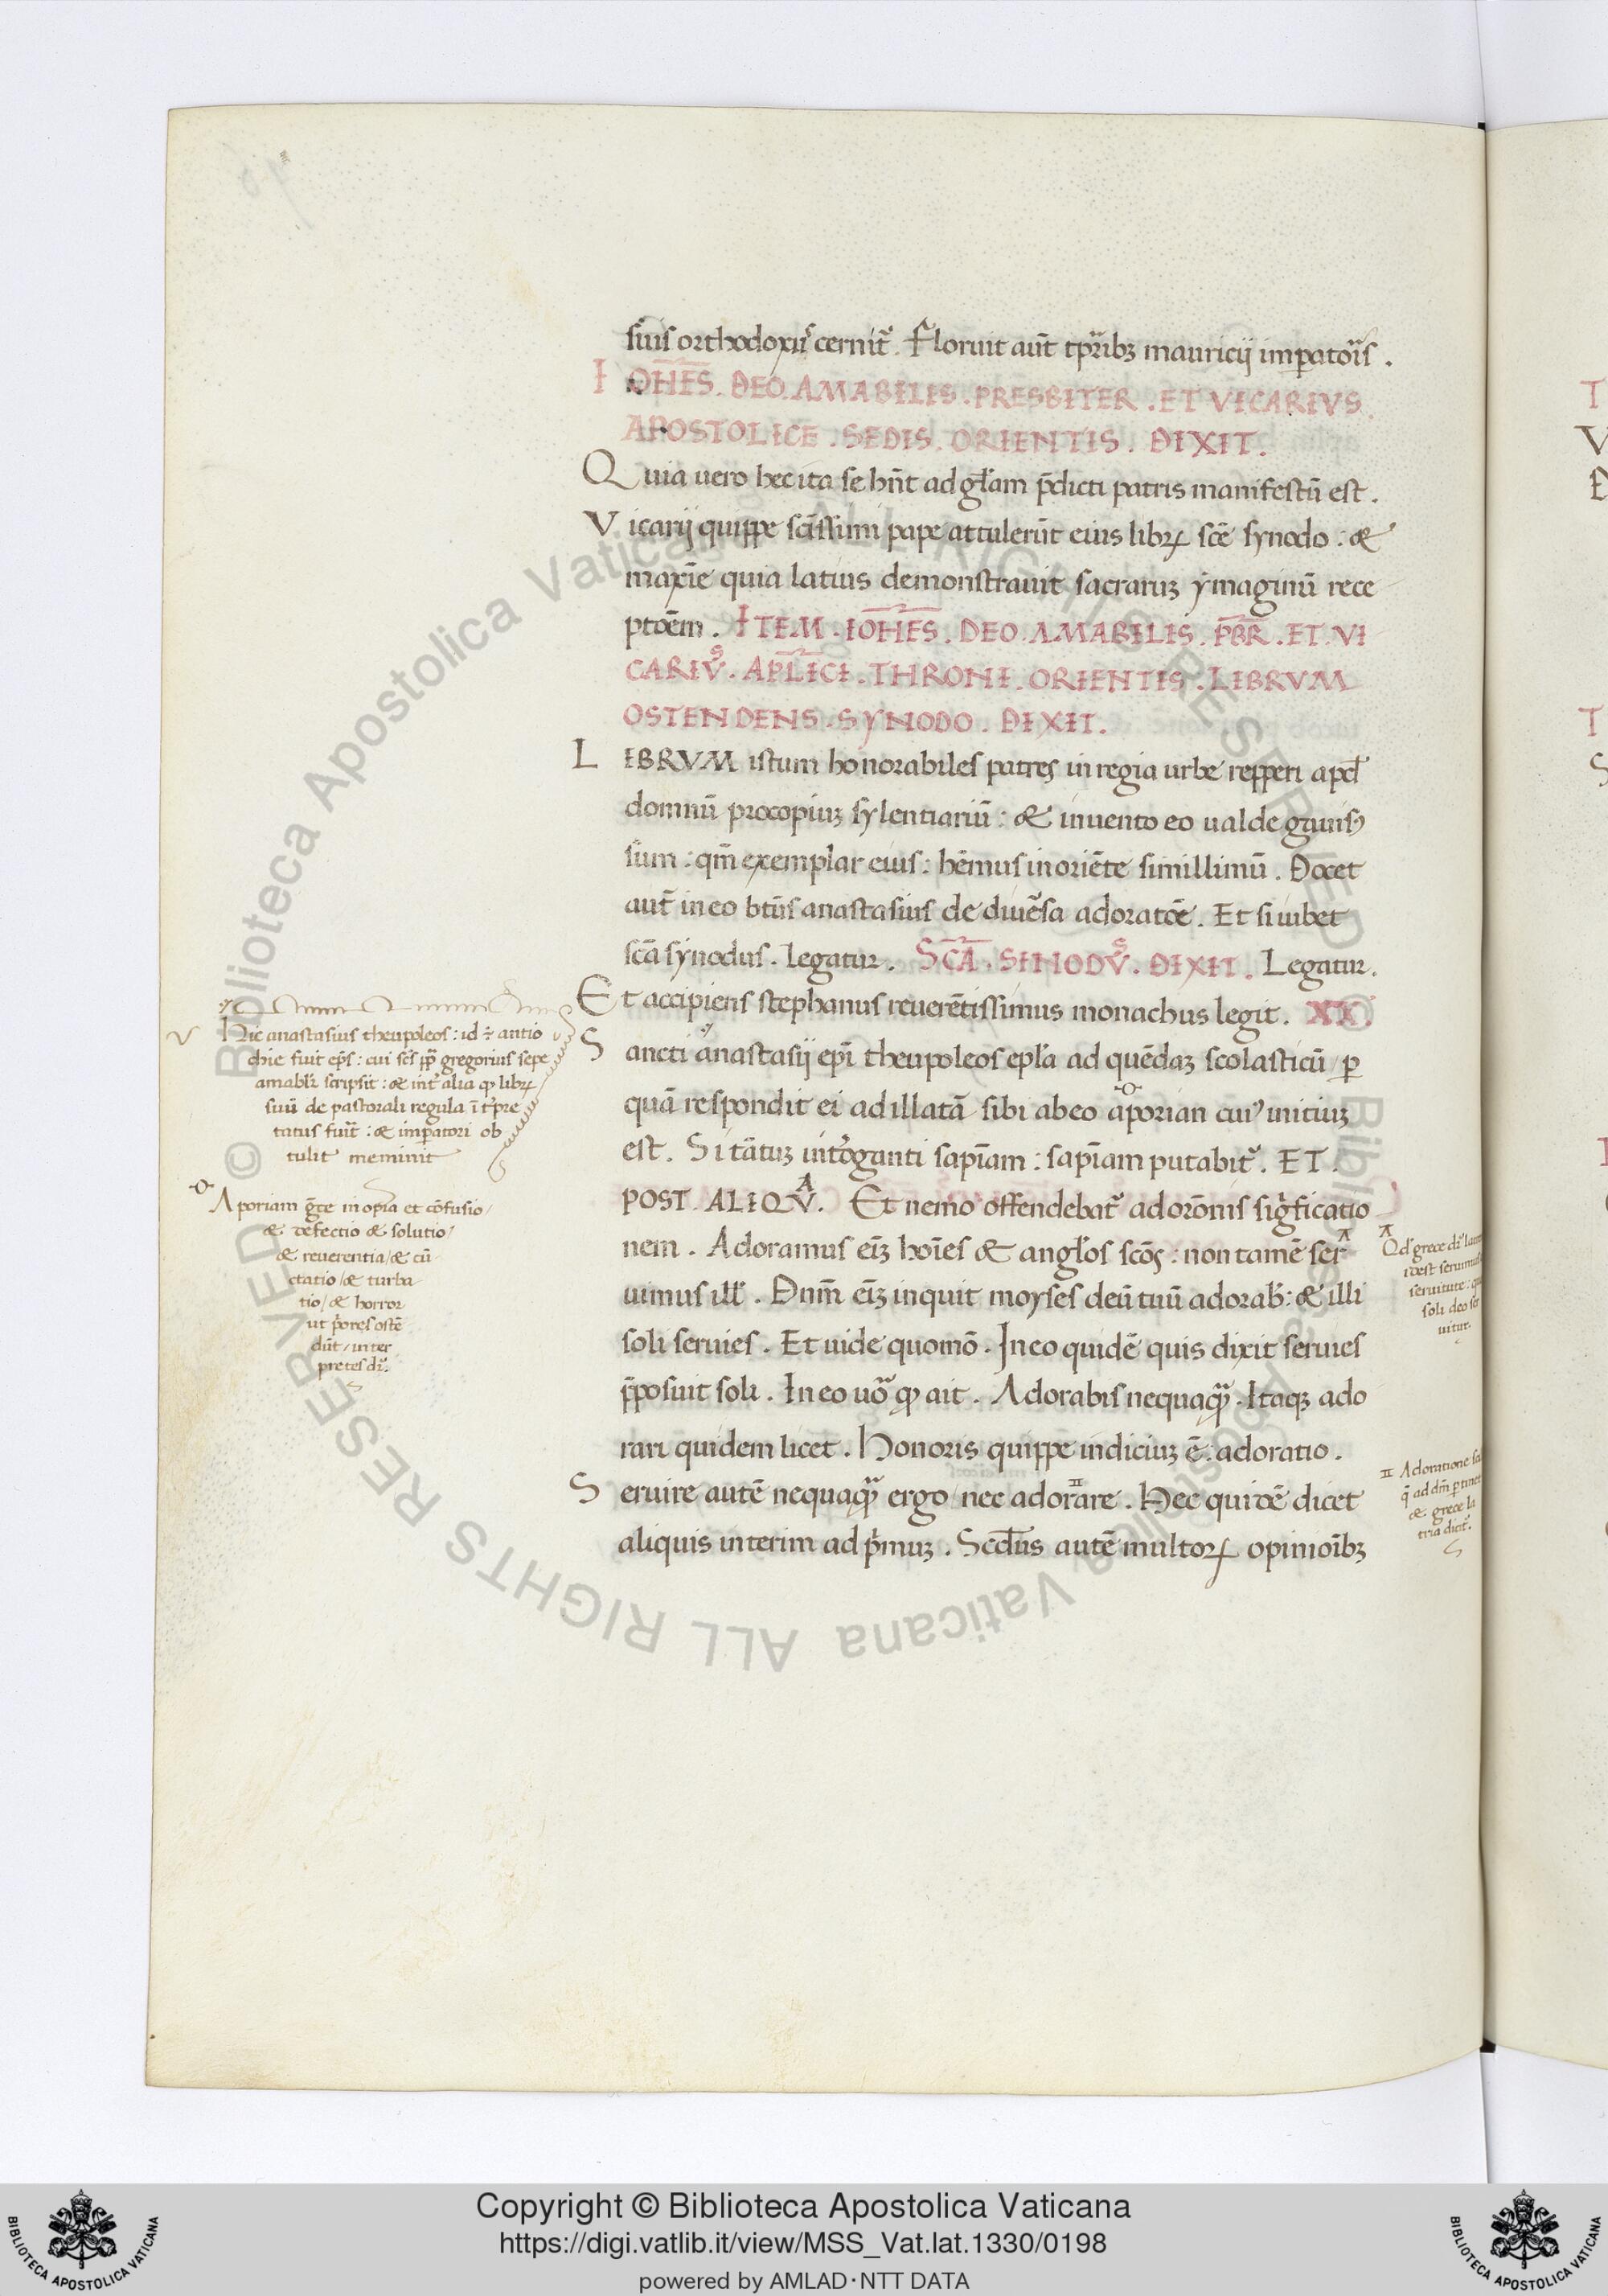 suis orthodoxus cernit᷑. Floruit aut̄ tp̄ribꝫ mauricij imperatoris.
IOH̄ES. DEO. AMABILIS. PRESBITER. ET VICARIVS.
APOSTOLICE. SEDIS. ORIENTIS. DIXIT.
Quia uero hec ita se hn̄t ad gl̄am p̄dicti patris manifestū est.
Vicarij quippe scīssimi pape attulerūt eius librꝝ scē synodo: &
maxīe quia latius demonstrauit sacraruꝫ ymaginū rece
ptōem. ITEM. IOH̄ES. DEO. AMABILIS. PB̄R. ET. VI
CARIVS. APL̄ICI. THRONI. ORIENTIS. LIBRVM
OSTENDENS. SYNODO. DIXIT.
LIBRVM istum honorabiles patres in regia urbe repperi apd̄
domnū procopiuꝫ sylentiariū: & inuento eo ualde gauisꝰ
sum: qm̄ exemplar eius: hēmus in oriēte simillimū. Docet
aut̄ in eo bt̄us anastasius de diuēsa adoratōe. Et si iubet
scā synodus. legatur. SCĀ. SINODVS. DIXIT. Legatur.
Et accipiens stephanus reuerētissimus monachus legit. XX.
Sancti anastasij ep̄i theupoleos epl̄a ad quēdaꝫ scolasticū / ꝑ
quā respondit ei ad illatā sibi ab eo aporian cuiꝰ initiuꝫ
est. Si tātuꝫ int᷑oganti sapīam: sapīam putabit᷑. ET.
POST. ALIQVA. Et nemo offendebat᷑ ad orōnis sigficatio
nem. Adoramus eīꝫ hoīes & angl̄os scōs: non tamē ser
uimus ill̄. Dnm̄ eīꝫ inquit moyses deū tuū adorab̄: & illi
soli seruies. Et uide quomō. In eo quidē quis dixit seruies
p̄posuit soli. In eo uō ꝙ ait. Adorabis nequaqꝫ. Itaqꝫ ado
rari quidem licet. Honoris quippe indiciuꝫ ē: adoratio.
Seruire autē nequaqꝫ ergo / nec adorare. Hec quidē dicet
aliquis interim ad p̄muꝫ. Scd̄us autē multorꝝ opinioībꝫ
Hic anastasius theupoleos: id ÷ antio
chie fuit ep̄s: cui scs̄ pp̄ gregorius sepe
amabl̄r scripsit: & int᷑ alia ꝙ librꝝ
suū de pastorali regula īt᷑pre
tatus fuīt: & imperatori ob
tulit meminit
Aporiam ḡce inopia et cōfusio /
& defectio & solutio /
& reuerentia / & cū
ctatio / & turba
tio / & horror
ut p̄ores ostē
dūt / inter
pretes dr̄.
Qd̄ grece dr̄
idest
seruitute:
soli deo ser
uitur.
II Adoratione
q̄ ad dm̄ pertinet
& grece la
tria dicit᷑.
Copyright © Biblioteca Apostolica Vaticana
https://digi.vatlib.it/view/MSS_Vat.lat.1330/0198
powered by AMLAD·NTT DATA
BIBLIOTECA APOSTOLICA VATICANA
BIBLIOTECA APOSTOLICA VATICANA
© Biblioteca Apostolica Vaticana ALL RIGHTS RESERVED
© Biblioteca Apostolica Vaticana ALL RIGHTS RESERVED